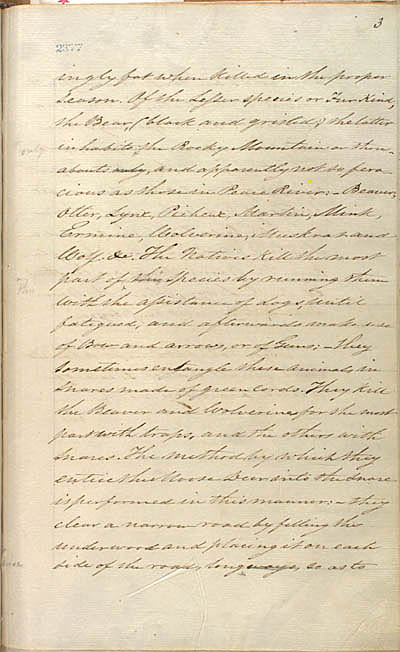 3
2377
ingly fat when killed in the proper
Season. Of the Lesser species or Fur Kind,
the Bear, (black and grisled; the latter
inhabits the Rocky Mountain or there-
abouts only, and apparently not so fero-
cious as those in Peace River; - Beaver,
Otter, Lynx, Picheux, Martin, Mink,
Ermine, Wolverine, Muskrat and
Wolf &c. The Natives kill the most
part of this species by running them
with the assistance of dogs, until
fatigued, and afterwards make use
of Bow and arrows, or of Guns; - they
sometimes entangle these animals in
snares made of green cords. They kill
the Beaver and Wolverine, for the most
part with traps, and the others with
snares. The method by which they
entice the Moose Deer into the snare
is performed in this manner: - they
clear a narrow road by felling the
underwood and placing it on each
side of the road, longways, so as to